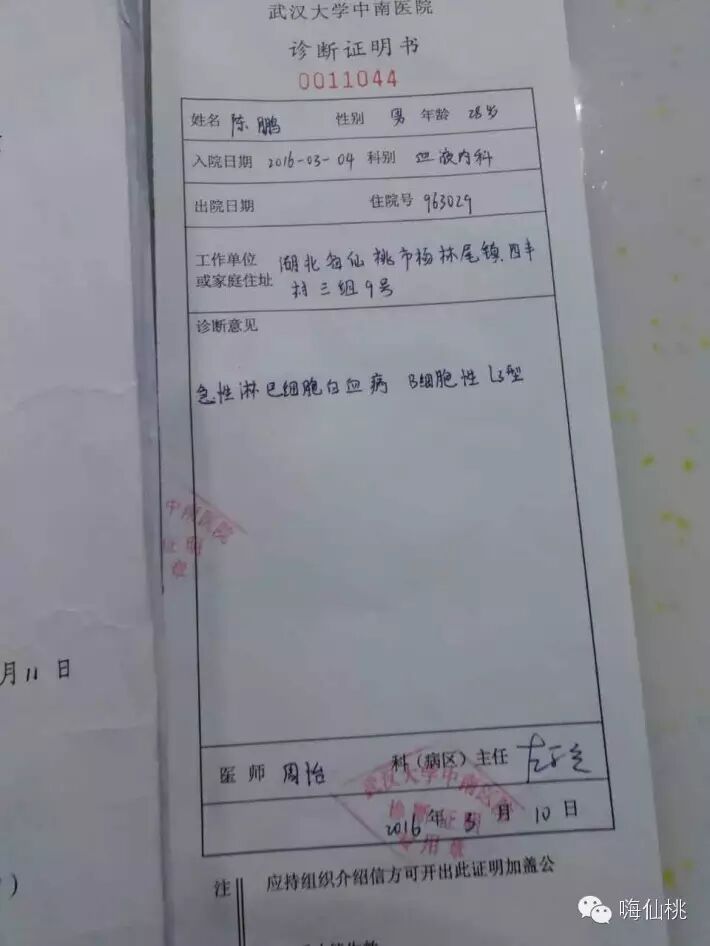 武汉大学中南医院
诊断证明书
0011044
姓名 陈鹏 性别 男 年龄 28岁
入院日期 2016-03-04 科别 血液内科
出院日期 住院号 963029
工作单位 湖北省仙桃市杨林尾镇四丰
或家庭住址 村三组9号
诊断意见
急性淋巴细胞白血病 B细胞性 L3型
中南医院
证明
章
月11日
医师 周怡 科(病区)主任
武汉大学中南医院
诊断证明
专用章
2016年3月10日
注 应持组织介绍信方可开出此证明加盖公
)
嗨仙桃